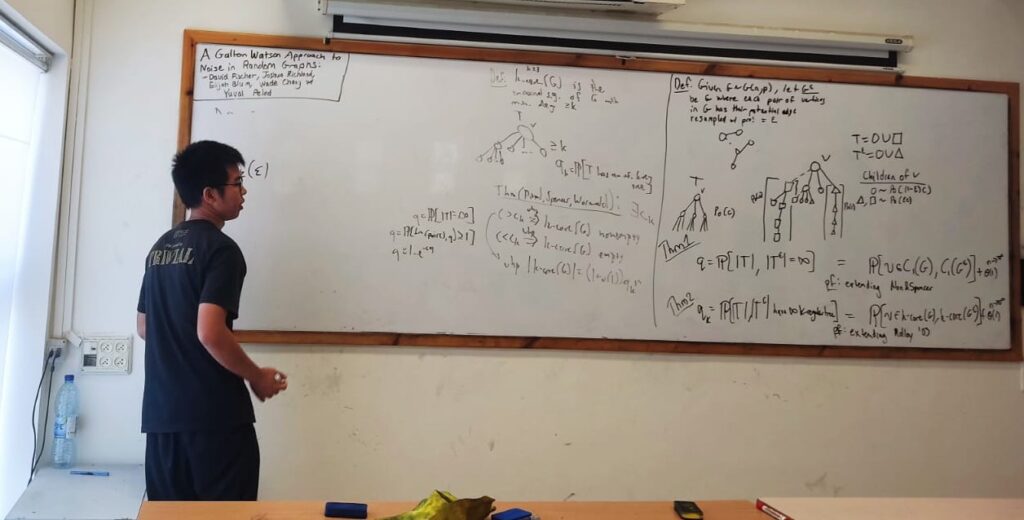 A Galton Watson Approach to
Noise in Random Graphs:
- David Fischer, Joshua Richland,
Elijah Blum, Jade Chong +
Yuval Peled
(ε)
TRIVIAL
Def: k-core(G) is the
maximal sg. of G with
min. deg. ≥k
T
v
≥k
q_k = P[T has
Thm (Pittel, Spencer, Wormald): ∃ c_k
(>c_k ⇒ k-core(G) nonempty
(<c_k ⇒ k-core(G) empty
whp |k-core(G)| = (1+o(1))q_k n
q = P[|T|=∞]
q = P[Bin(Po(c), q) ≥ 1]
q = 1-e^{-cq}
Def: Given G~G(n,p), let G^ε
be G where each pair of vertices
in G has their potential edge
resampled w/ prob = ε
T
v
Po(c)
v
T = O∪□
T^ε = O∪Δ
Children of v
O ~ Po((1-ε)c)
Δ, □ ~ Po(εc)
Thm 1
q = P[|T|, |T^ε| = ∞] = P[v ∈ C_1(G), C_1(G^ε)] + o(1)
pf: extending Alon & Spencer
Thm 2
q_k = P[T, T^ε have = P[v ∈ k-core(G), k-core(G^ε)] + o(1)
pf: extending Molloy